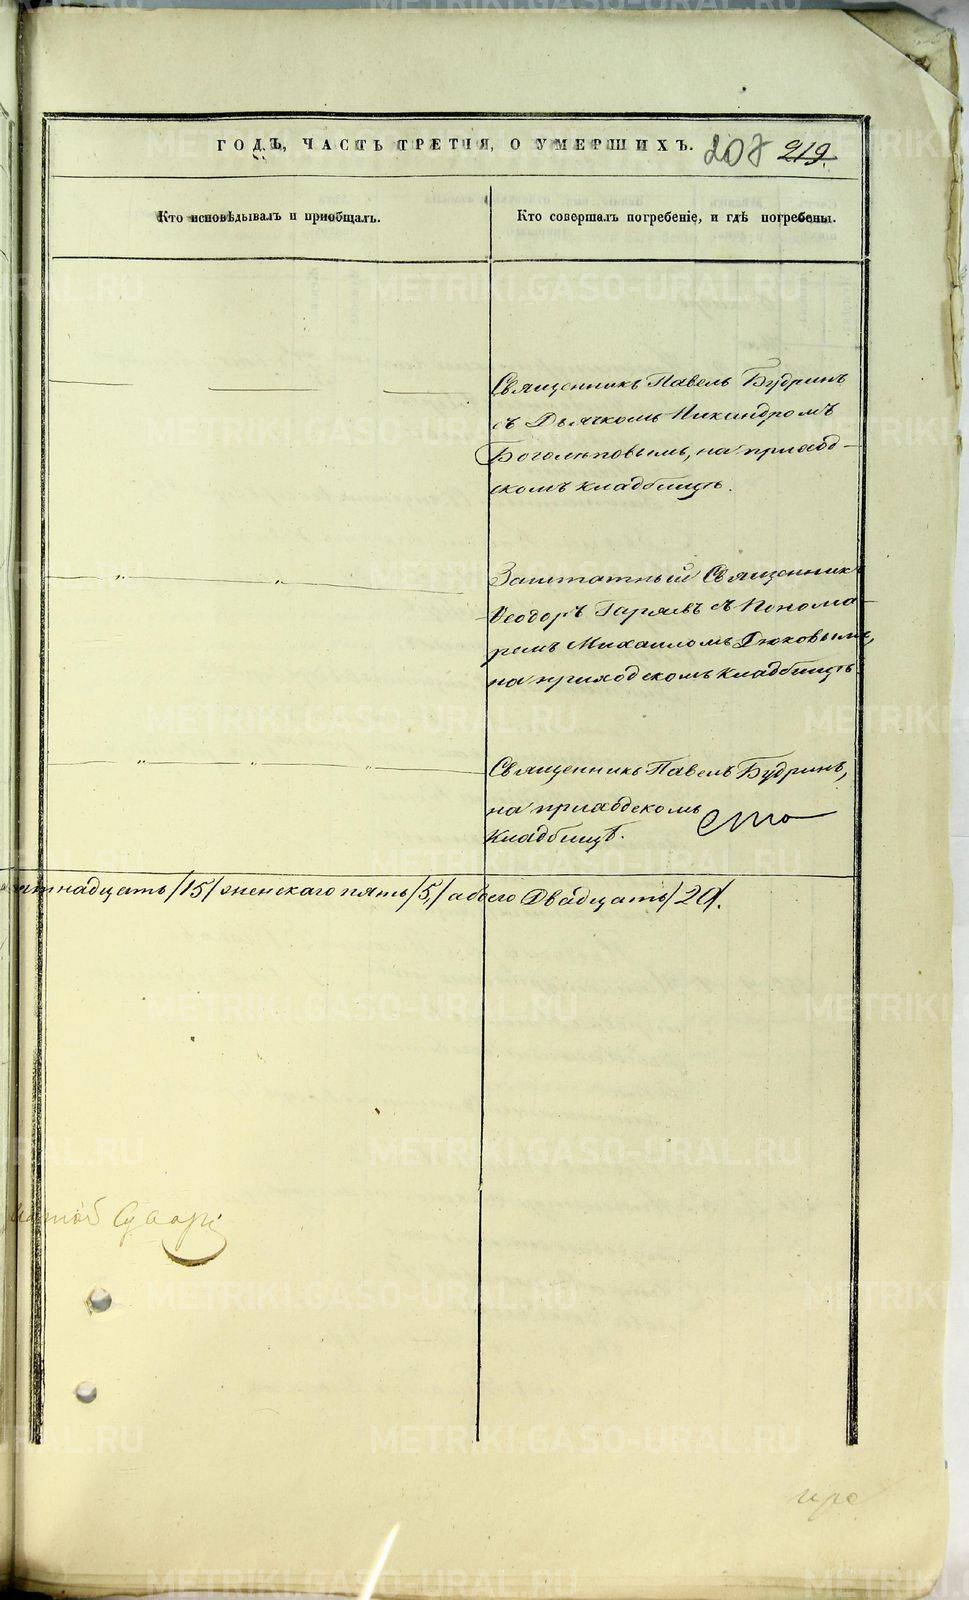 ГОДЪ, ЧАСТЬ ТРЕТІЯ, О УМЕРШИХЪ. 207 219.
Кто исповѣдывалъ и приобщалъ.
Кто совершалъ погребеніе, и гдѣ погребены.
Священникъ Павелъ Будринъ
съ Дьячкомъ Никандромъ
Боголѣповымъ, на приход-
скомъ кладбищѣ.
Заштатный Священникъ
Ѳеодоръ Гаряевъ съ Понома-
ремъ Михаиломъ
на приходскомъ кладбищѣ
Священникъ Павелъ Будринъ,
на приходскомъ
Кладбищѣ.
надцать /15/ женскаго пять /5,/ а обоего Двадцать /20/.
METRIKI.GASO-URAL.RU